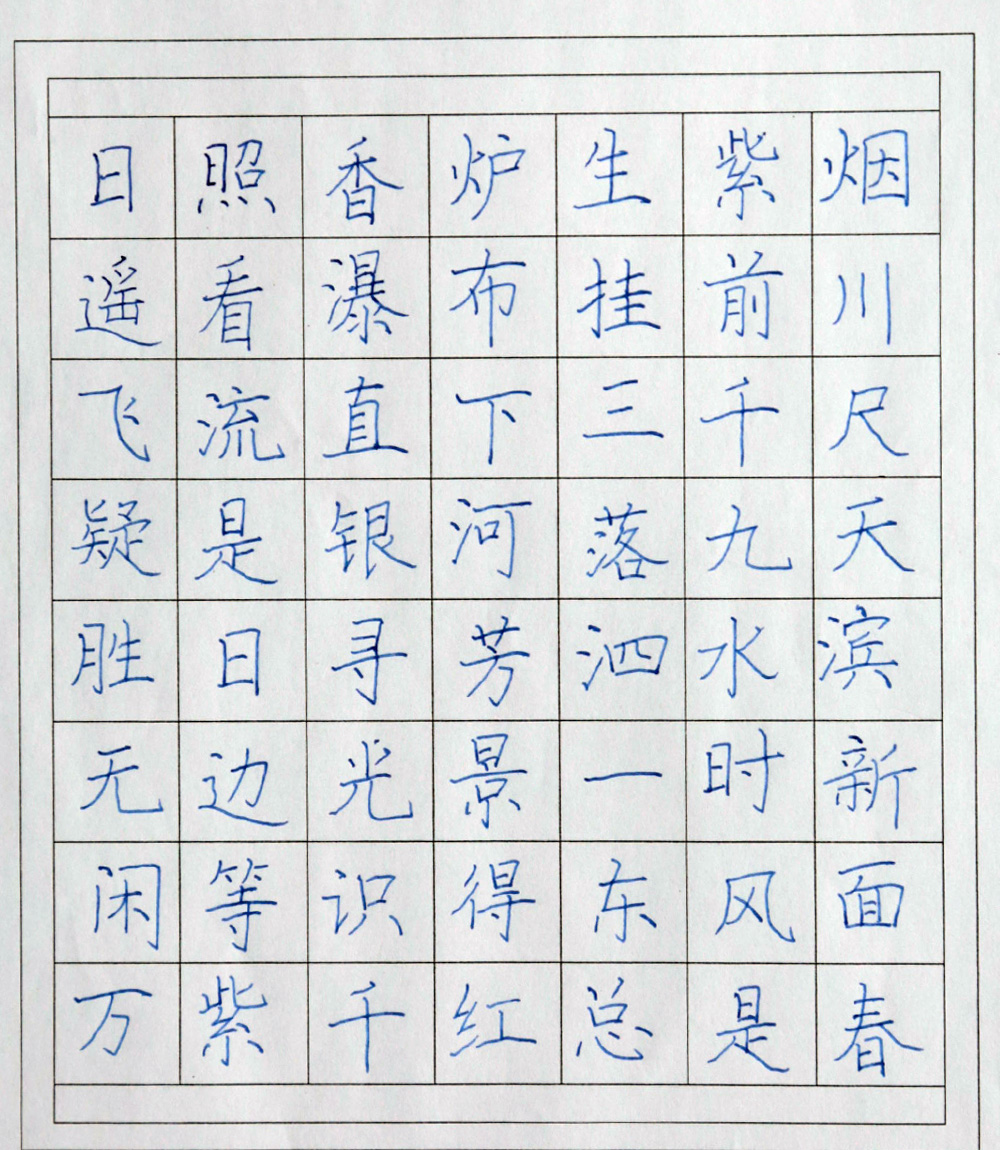 日照香炉生紫烟
遥看瀑布挂前川
飞流直下三千尺
疑是银河落九天
胜日寻芳泗水滨
无边光景一时新
闲等识得东风面
万紫千红总是春